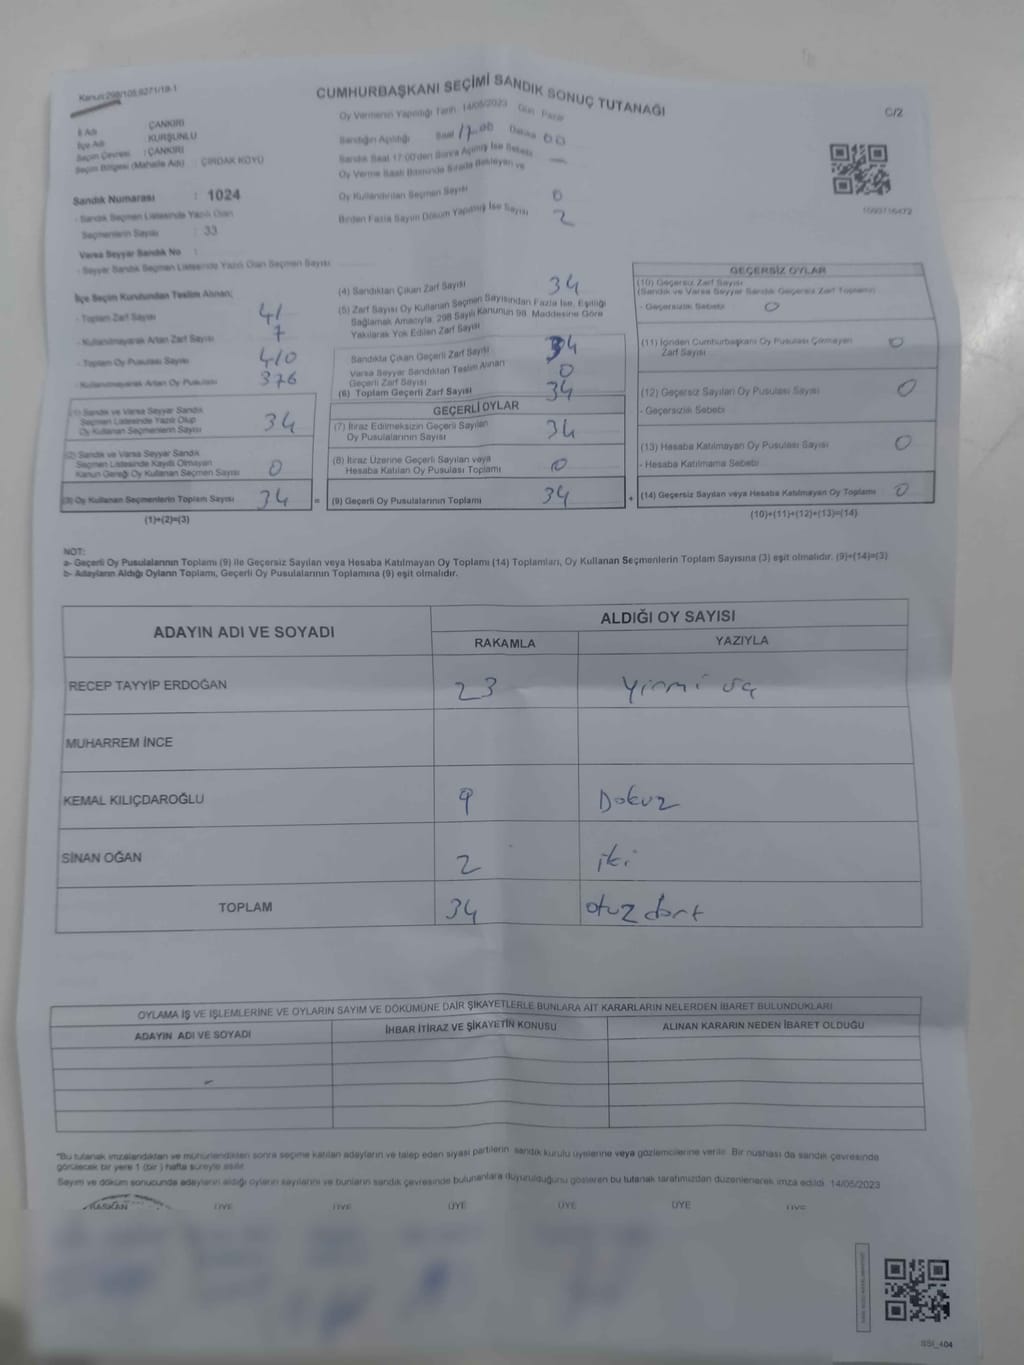 Kanun:298/105.9271/18-1
CUMHURBAŞKANI SEÇİMİ SANDIK SONUÇ TUTANAĞI
C/2
İl Adı : ÇANKIRI
İlçe Adı : KURŞUNLU
Seçim Çevresi : ÇANKIRI
Seçim Bölgesi (Mahalle Adı) : ÇIRDAK KÖYÜ
Oy Vermenin Yapıldığı Tarih 14/05/2023 Gün Pazar
Sandığın Açıldığı Saat 17.00 Dakika 00
Sandık Saat 17:00'den Sonra Açılmış İse Sebebi
Oy Verme Saati Bitiminde Sırada Bekleyen ve
Oy Kullandırılan Seçmen Sayısı 0
Birden Fazla Sayım Döküm Yapılmış İse Sayısı 2
Sandık Numarası : 1024
- Sandık Seçmen Listesinde Yazılı Olan
Seçmenlerin Sayısı : 33
Varsa Seyyar Sandık No :
- Seyyar Sandık Seçmen Listesinde Yazılı Olan Seçmen Sayısı
İlçe Seçim Kurulundan Teslim Alınan;
- Toplam Zarf Sayısı 41
- Kullanılmayarak Artan Zarf Sayısı 7
- Toplam Oy Pusulası Sayısı 410
- Kullanılmayarak Artan Oy Pusulası 376
(1) Sandık ve Varsa Seyyar Sandık
Seçmen Listesinde Yazılı Olup
Oy Kullanan Seçmenlerin Sayısı 34
(2) Sandık ve Varsa Seyyar Sandık
Seçmen Listesinde Kayıtlı Olmayan
Kanun Gereği Oy Kullanan Seçmen Sayısı 0
(3) Oy Kullanan Seçmenlerin Toplam Sayısı 34
(1)+(2)=(3)
(4) Sandıktan Çıkan Zarf Sayısı 34
(5) Zarf Sayısı Oy Kullanan Seçmen Sayısından Fazla İse, Eşitliği
Sağlamak Amacıyla, 298 Sayılı Kanunun 98. Maddesine Göre
Yakılarak Yok Edilen Zarf Sayısı
Sandıkta Çıkan Geçerli Zarf Sayısı 34
Varsa Seyyar Sandıktan Teslim Alınan
Geçerli Zarf Sayısı 0
(6) Toplam Geçerli Zarf Sayısı 34
GEÇERLİ OYLAR
(7) İtiraz Edilmeksizin Geçerli Sayılan
Oy Pusulalarının Sayısı 34
(8) İtiraz Üzerine Geçerli Sayılan veya
Hesaba Katılan Oy Pusulası Toplamı 0
= (9) Geçerli Oy Pusulalarının Toplamı 34
GEÇERSİZ OYLAR
(10) Geçersiz Zarf Sayısı
(Sandık ve Varsa Seyyar Sandık Geçersiz Zarf Toplamı)
- Geçersizlik Sebebi 0
(11) İçinden Cumhurbaşkanı Oy Pusulası Çıkmayan
Zarf Sayısı 0
(12) Geçersiz Sayılan Oy Pusulası Sayısı 0
- Geçersizlik Sebebi
(13) Hesaba Katılmayan Oy Pusulası Sayısı 0
- Hesaba Katılmama Sebebi
+ (14) Geçersiz Sayılan veya Hesaba Katılmayan Oy Toplamı 0
(10)+(11)+(12)+(13)=(14)
NOT:
a- Geçerli Oy Pusulalarının Toplamı (9) ile Geçersiz Sayılan veya Hesaba Katılmayan Oy Toplamı (14) Toplamları, Oy Kullanan Seçmenlerin Toplam Sayısına (3) eşit olmalıdır. (9)+(14)=(3)
b- Adayların Aldığı Oyların Toplamı, Geçerli Oy Pusulalarının Toplamına (9) eşit olmalıdır.
ADAYIN ADI VE SOYADI
ALDIĞI OY SAYISI
RAKAMLA YAZIYLA
RECEP TAYYİP ERDOĞAN 23 Yirmi üç
MUHARREM İNCE
KEMAL KILIÇDAROĞLU 9 Dokuz
SİNAN OĞAN 2 iki
TOPLAM 34 otuz dört
OYLAMA İŞ VE İŞLEMLERİNE VE OYLARIN SAYIM VE DÖKÜMÜNE DAİR ŞİKAYETLERLE BUNLARA AİT KARARLARIN NELERDEN İBARET BULUNDUKLARI
ADAYIN ADI VE SOYADI İHBAR İTİRAZ VE ŞİKAYETİN KONUSU ALINAN KARARIN NEDEN İBARET OLDUĞU
*Bu tutanak imzalandıktan ve mühürlendikten sonra seçime katılan adayların ve talep eden siyasi partilerin sandık kurulu üyelerine veya gözlemcilerine verilir. Bir nüshası da sandık çevresinde
görülecek bir yere 1 (bir) hafta süreyle asılır.
Sayım ve döküm sonucunda adayların aldığı oyların sayılarını ve bunların sandık çevresinde bulunanlara duyurulduğunu gösteren bu tutanak tarafımızdan düzenlenerek imza edildi. 14/05/2023
BAŞKAN ÜYE ÜYE ÜYE ÜYE ÜYE ÜYE